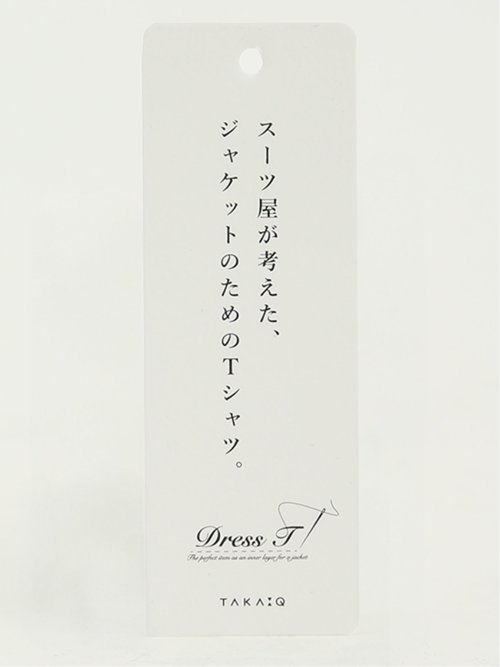 スーツ屋が考えた、
ジャケットのためのTシャツ。
Dress T
The perfect item as an inner layer for a jacket
TAKA:Q